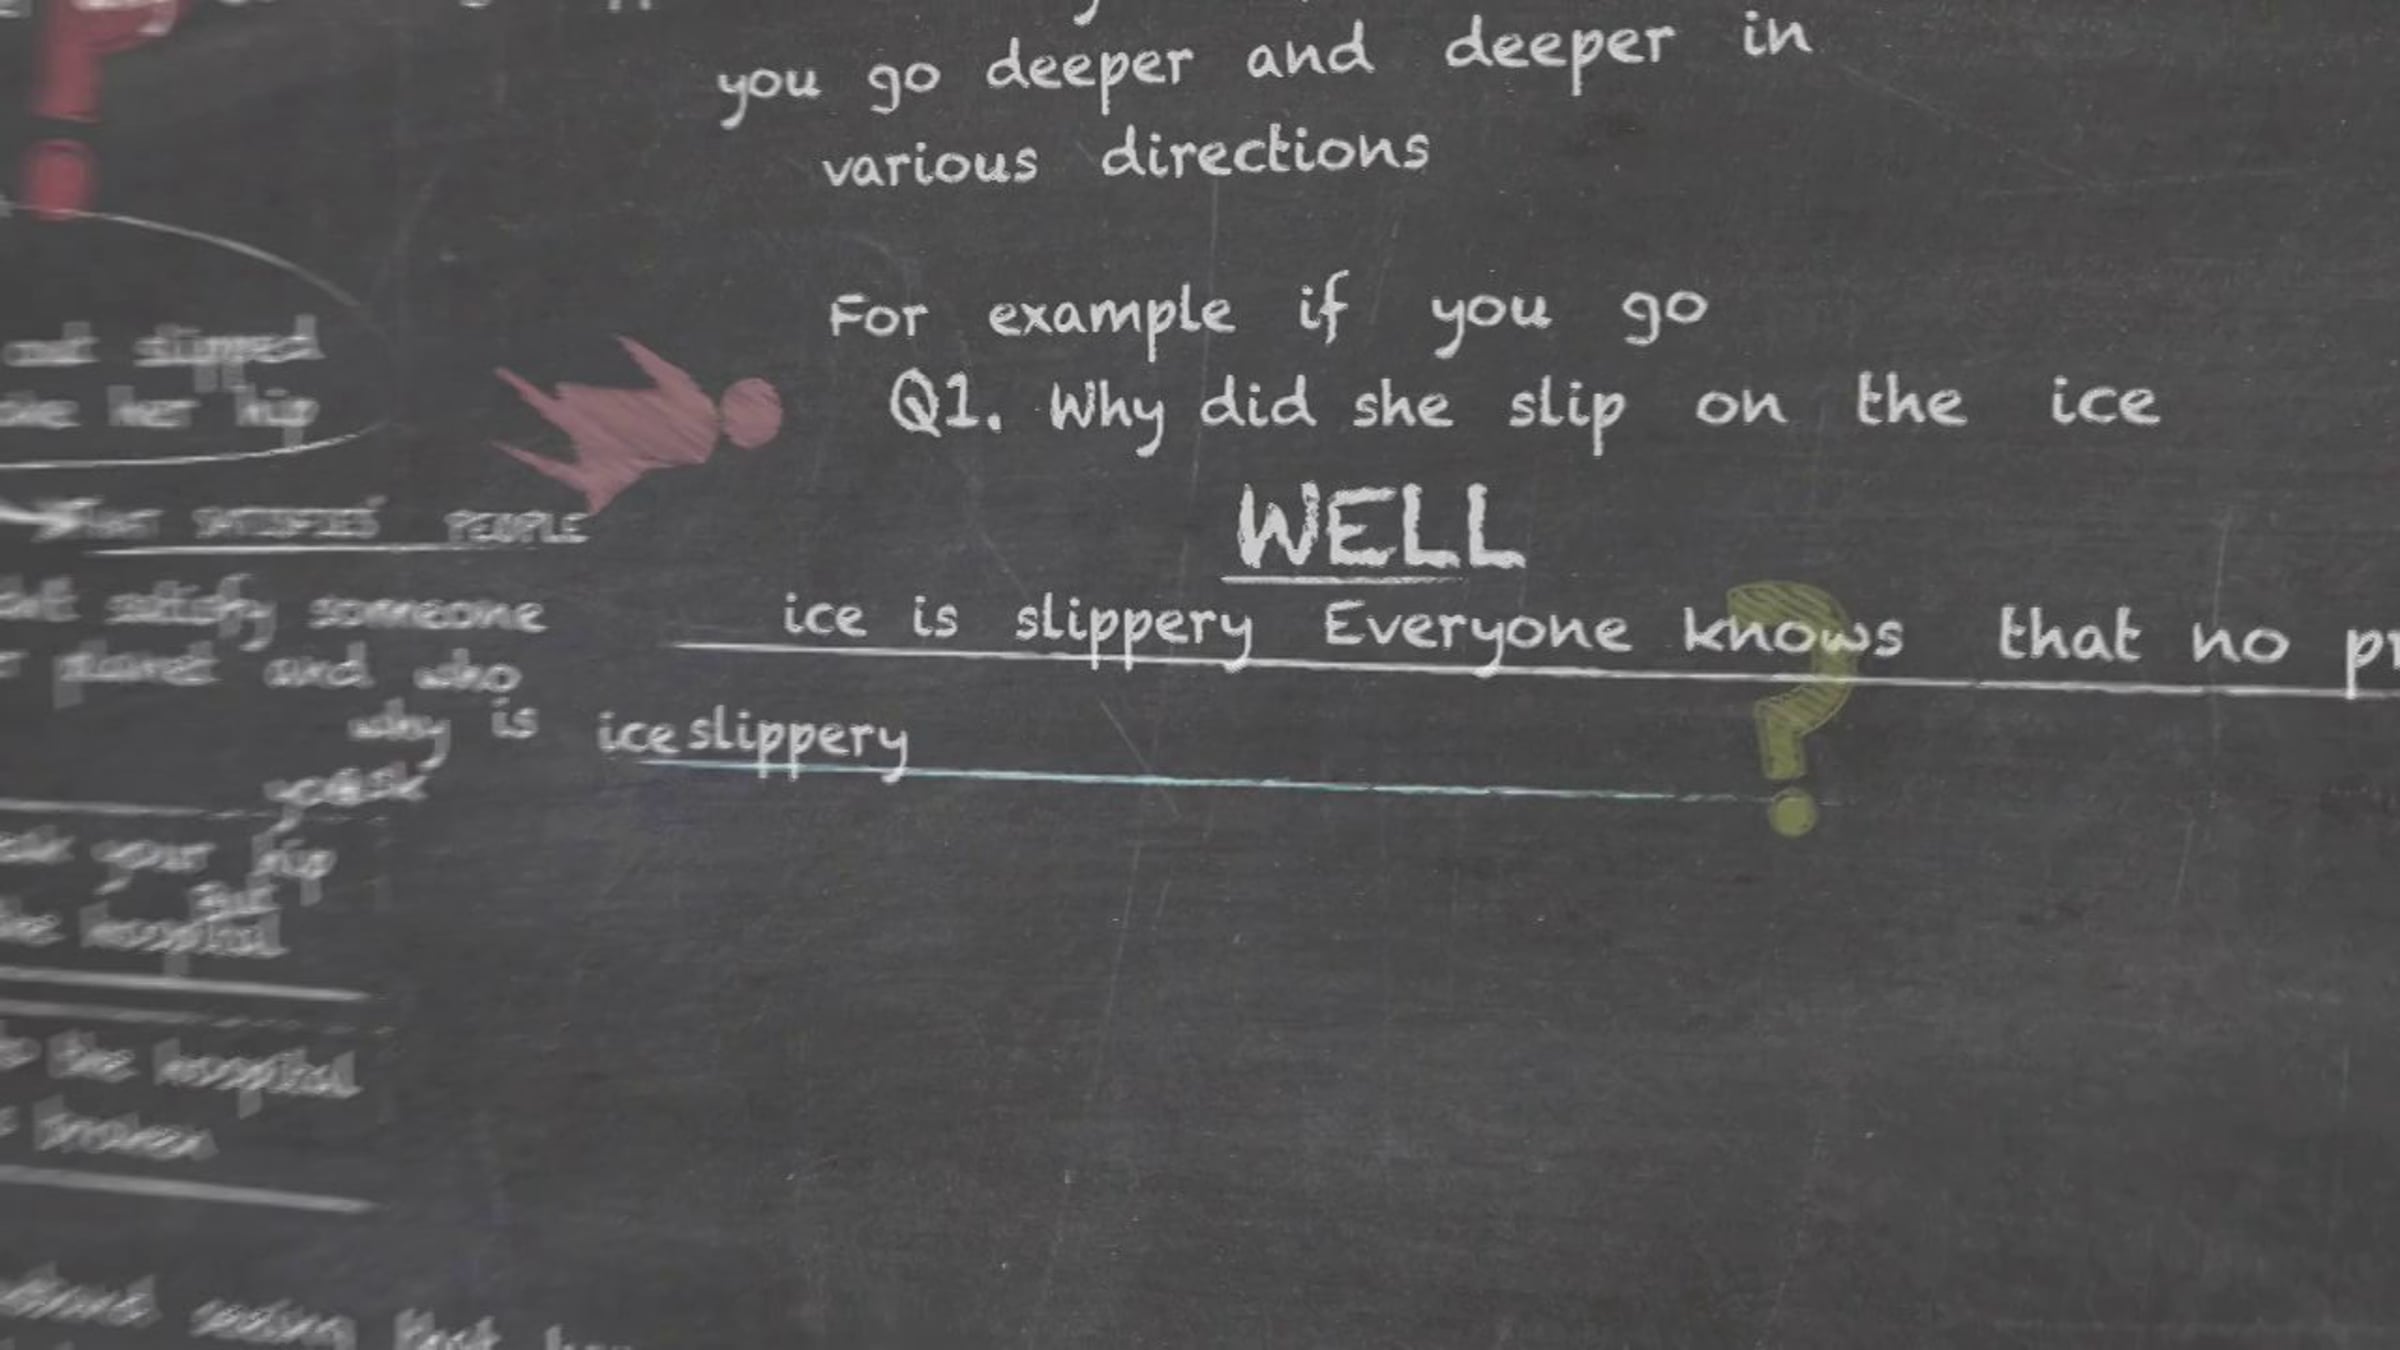 you go deeper and deeper in
various directions
For example if you go
Q1. Why did she slip on the ice
WELL
ice is slippery Everyone knows that no
why is ice slippery
slipped
her hip
SATISFIES PEOPLE
satisfy someone
planet and who
your hip
but
the hospital
to the hospital
broken